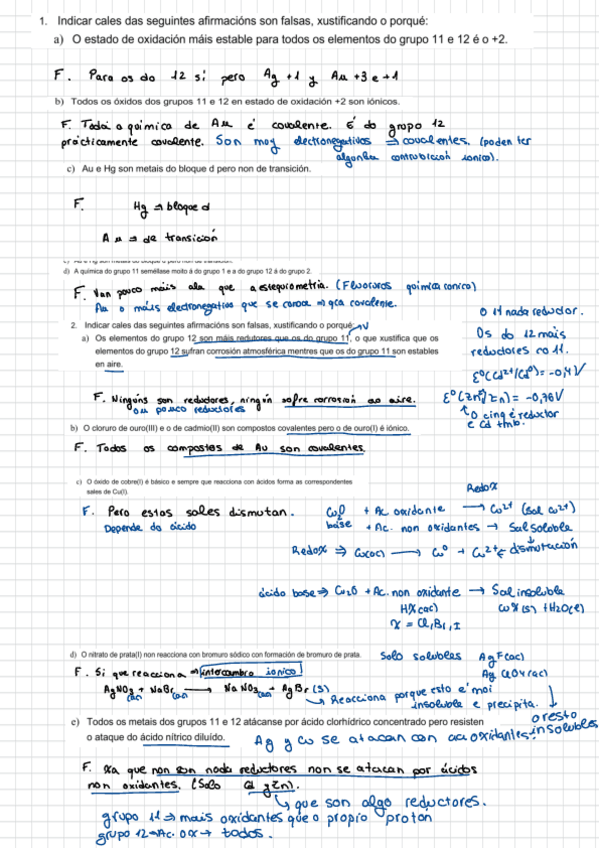 1. Indicar cales das seguintes afirmacións son falsas, xustificando o porqué:
a) O estado de oxidación máis estable para todos os elementos do grupo 11 e 12 é o +2.
F. Para os do 12 sí pero Ag +1 y Au +3 e +1
b) Todos os óxidos dos grupos 11 e 12 en estado de oxidación +2 son iónicos.
F. Toda a química de Au é covalente. E do grupo 12
prácticamente covalente. Son moy electronegativos ⇒ covalentes. (poden ter
algunha contribución iónica).
c) Au e Hg son metais do bloque d pero non de transición.
F. Hg ⇒ bloque d
Au ⇒ de transición
d) A química do grupo 11 seméllase moito á do grupo 1 e a do grupo 12 á do grupo 2.
F. Van pouco máis alá que a estequiometría. (Fluoruros química iónica)
Au o máis electronegativo que se coñece ⇒ qca covalente.
2. Indicar cales das seguintes afirmacións son falsas, xustificando o porqué:
a) Os elementos do grupo 12 son máis redutores que os do grupo 11, o que xustifica que os
elementos do grupo 12 sufran corrosión atmosférica mentres que os do grupo 11 son estables
en aire.
O 11 nada reductor.
Os do 12 máis
reductores co 11.
E⁰(Cd²⁺/Cd⁰) = -0,4V
E⁰(Zn²⁺/Zn) = -0,76V
↑ O cinq é reductor
e Cd tmb.
F. Ningúns son redutores, ningún sofre corrosión ao aire.
ou pouco reductores
b) O cloruro de ouro(III) e o de cadmio(II) son compostos covalentes pero o de ouro(I) é iónico.
F. Todos os compostos de Au son covalentes.
c) O óxido de cobre(I) é básico e sempre que reacciona con ácidos forma as correspondentes
sales de Cu(I).
F. Pero estas sales dismutan.
Depende do ácido
Redox
+ Ac oxidante → Cu²⁺ (sal Cu²⁺)
base + Ac. non oxidantes → Sal soluble
Redox ⇒ Cu(ac) → Cu⁰ + Cu²⁺ dismutación
ácido base ⇒ Cu₂O + Ac. non oxidante → Sal insoluble
HX(ac) CuX(s) + H₂O(l)
X = Cl, Br, I
d) O nitrato de prata(I) non reacciona con bromuro sódico con formación de bromuro de prata.
Solo solubles AgF(ac)
F. Si que reacciona ⇒ intercambio iónico
AgNO₃(ac) + NaBr(ac) → NaNO₃(ac) + AgBr(s)
Reacciona porque esto é moi
insoluble e precipita.
o resto
insolubles
e) Todos os metais dos grupos 11 e 12 atácanse por ácido clorhídrico concentrado pero resisten
o ataque do ácido nítrico diluído.
Ag y Cu se atacan con ac. oxidantes.
F. Xa que non son nada reductores non se atacan por ácidos
non oxidantes. (Solo Cd y Zn).
que son algo reductores.
grupo 11 ⇒ mais oxidantes que o propio protón
grupo 12 ⇒ Ac. ox → todos.